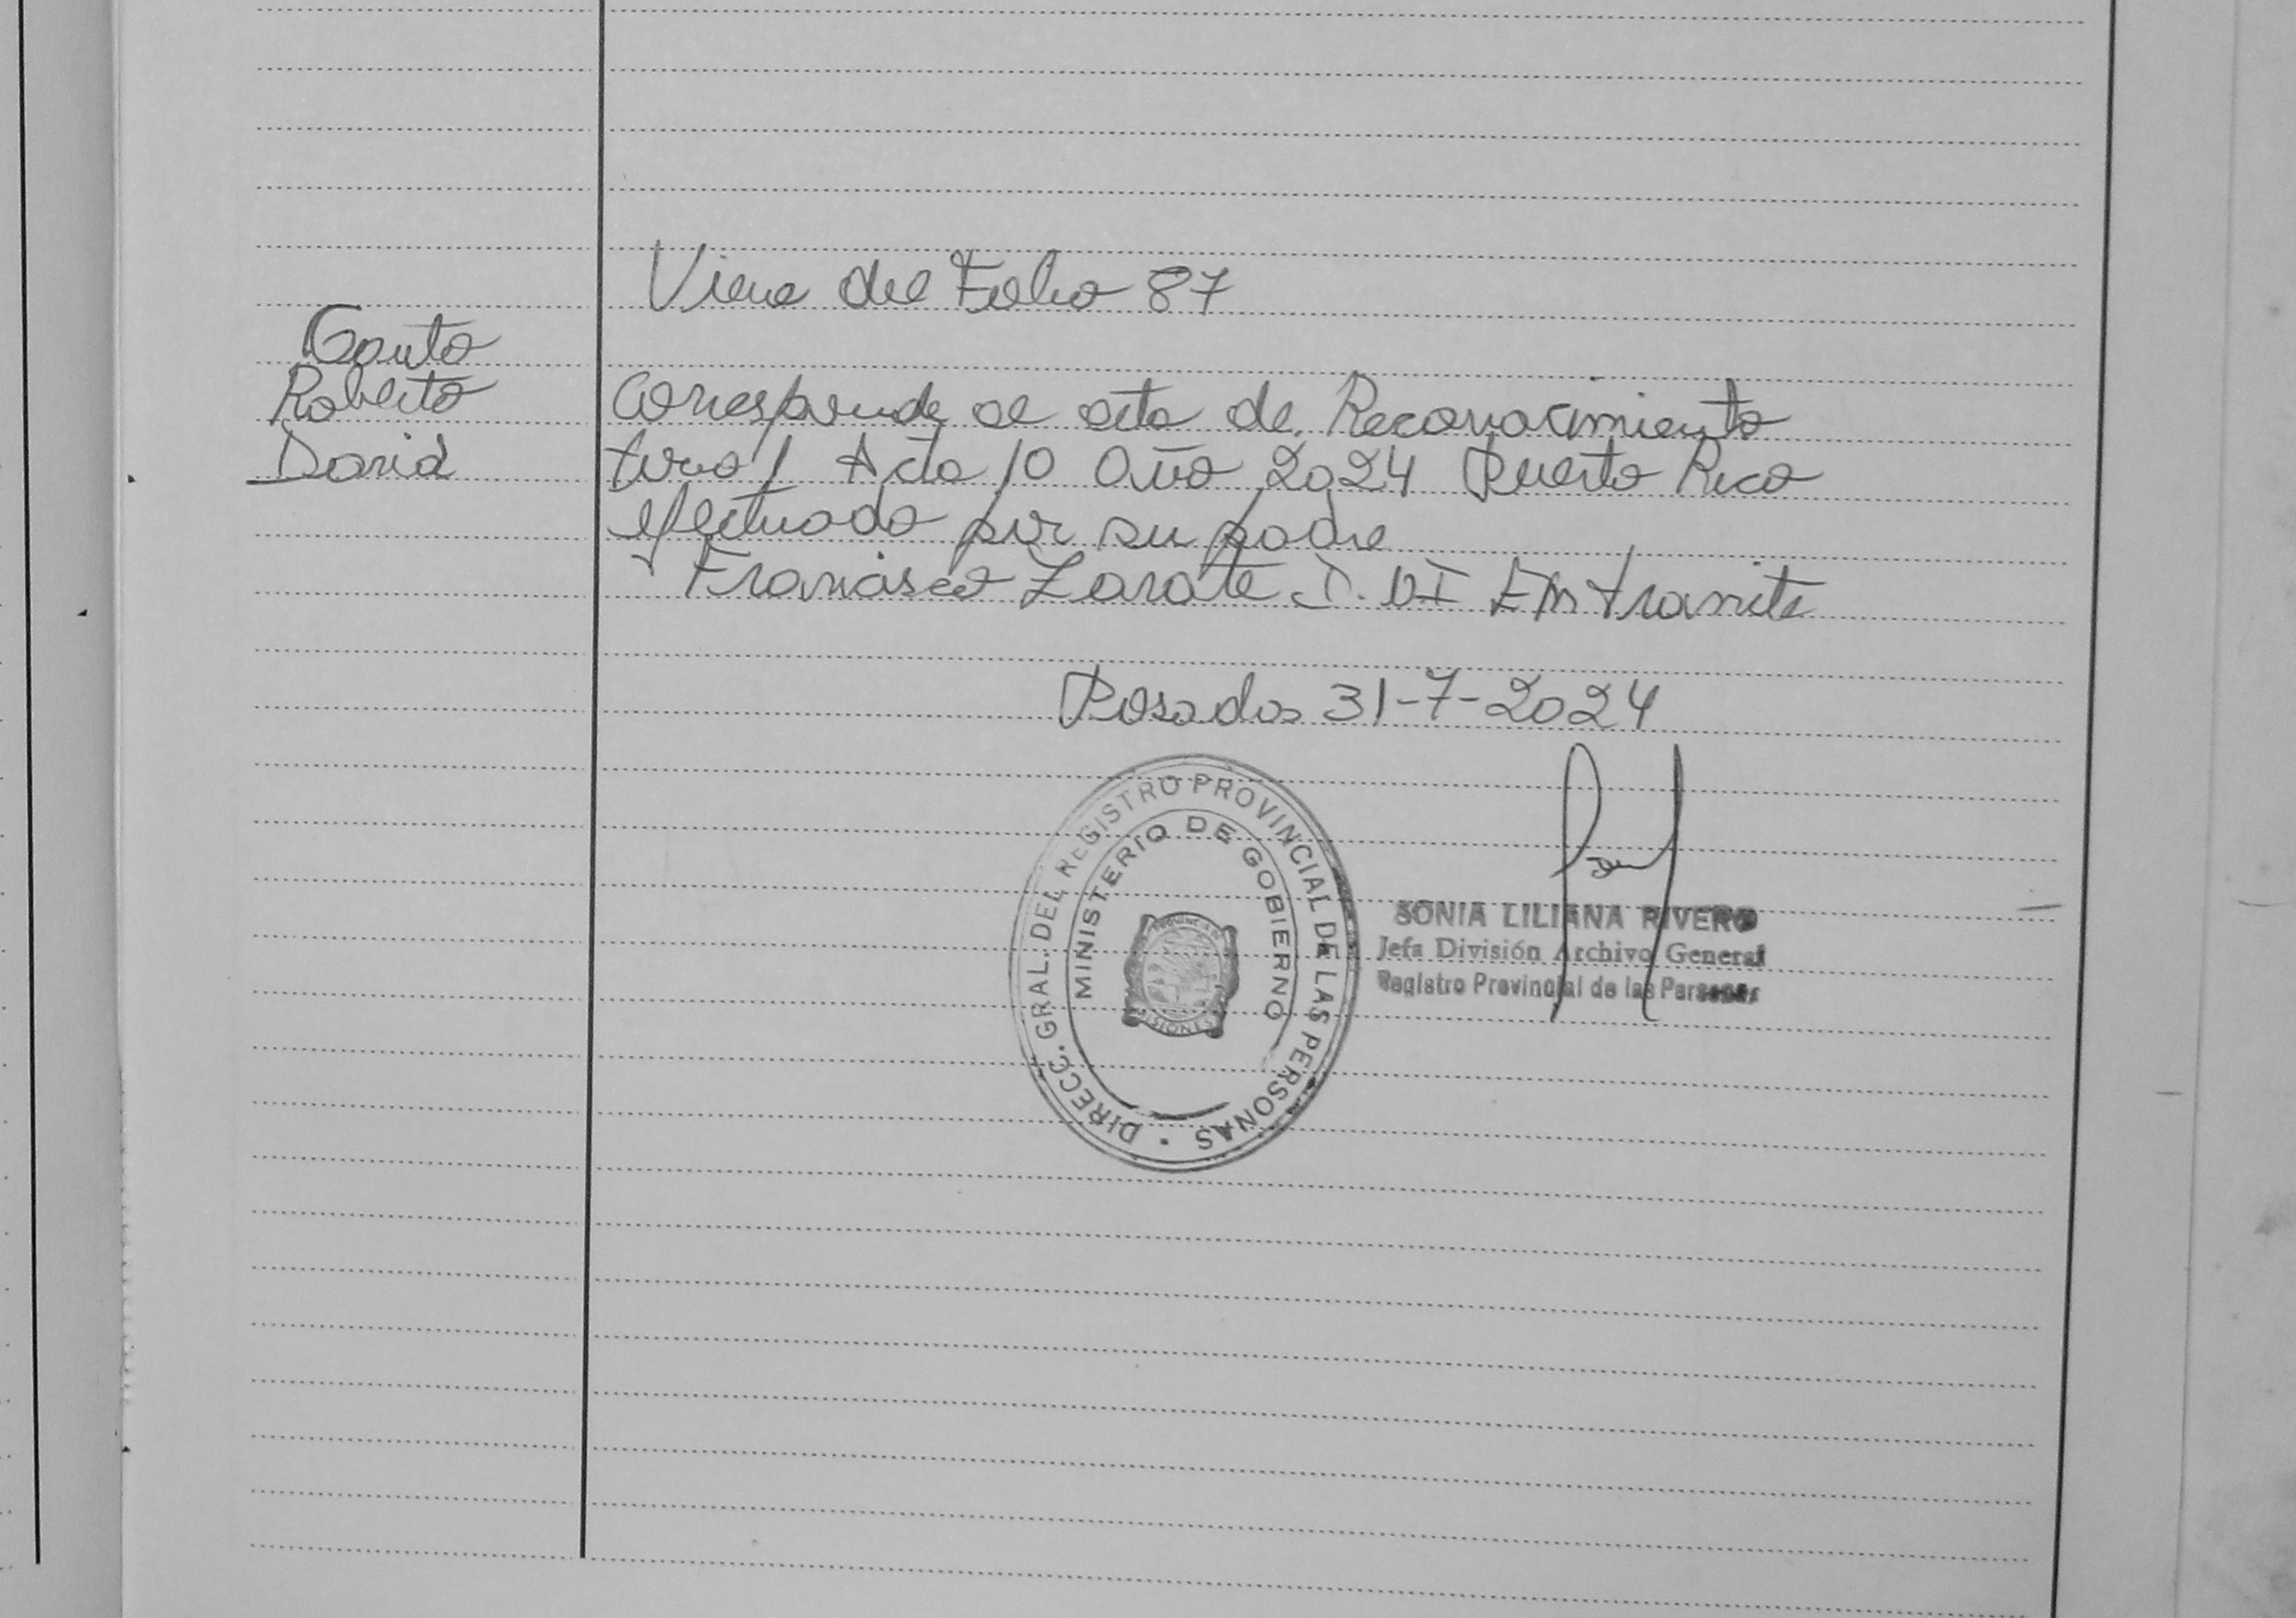 Viene del Folio 87
Couto
Roberto
David
Corresponde al acta de Reconocimiento
tomo 1 Acta 10 Año 2024 Puerto Rico
efectuado por su padre
Francisco Zarate D.NI En tramite
Posadas 31-7-2024
DIRECC. GRAL. DEL REGISTRO PROVINCIAL DE LAS PERSONAS
MINISTERIO DE GOBIERNO
PROVINCIA DE
MISIONES
SONIA LILIANA RIVERO
Jefa División Archivo General
Registro Provincial de las Personas